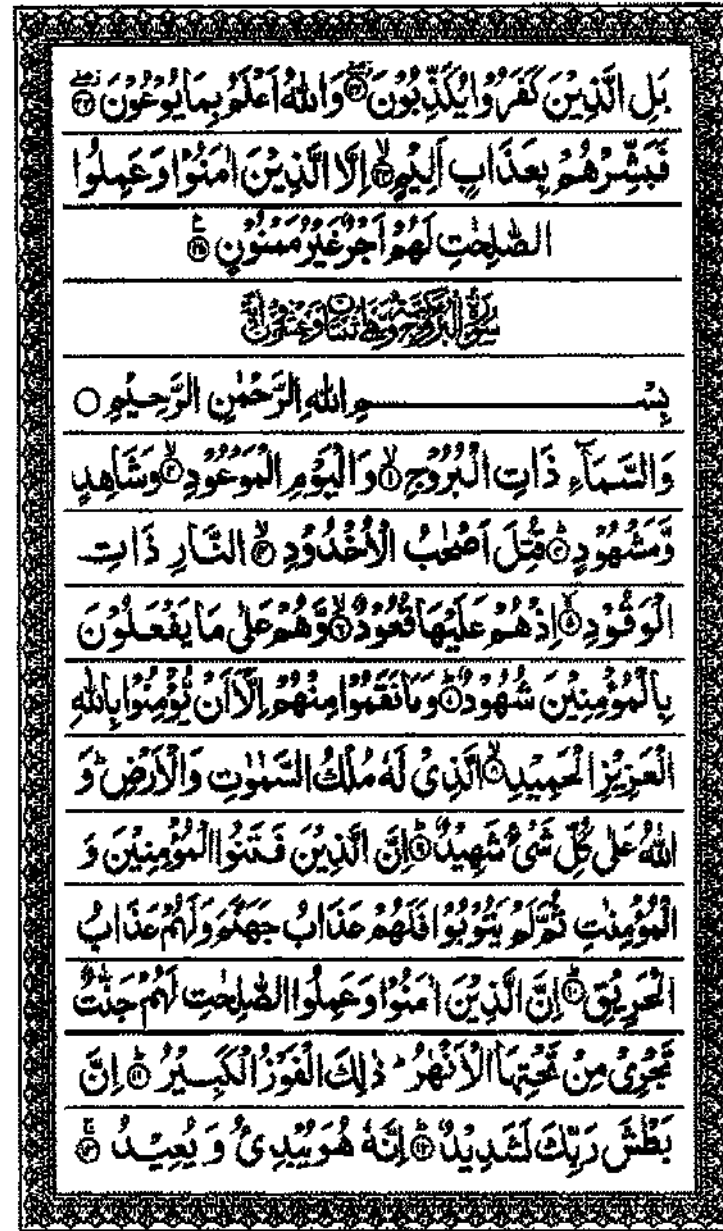 بَلِ الَّذِيْنَ كَفَرُوْا يُكَذِّبُوْنَ ﴿۲۲﴾ وَاللّٰهُ اَعْلَمُ بِمَا يُوْعُوْنَ ﴿۲۳﴾
فَبَشِّرْهُمْ بِعَذَابٍ اَلِيْمٍ ﴿۲۴﴾ اِلَّا الَّذِيْنَ اٰمَنُوْا وَعَمِلُوا
الصّٰلِحٰتِ لَهُمْ اَجْرٌ غَيْرُ مَمْنُوْنٍ ﴿۲۵﴾
بِسْمِ اللّٰهِ الرَّحْمٰنِ الرَّحِيْمِ ○
وَالسَّمَآءِ ذَاتِ الْبُرُوْجِ ﴿۱﴾ وَالْيَوْمِ الْمَوْعُوْدِ ﴿۲﴾ وَشَاهِدٍ
وَّمَشْهُوْدٍ ﴿۳﴾ قُتِلَ اَصْحٰبُ الْاُخْدُوْدِ ﴿۴﴾ النَّارِ ذَاتِ
الْوَقُوْدِ ﴿۵﴾ اِذْ هُمْ عَلَيْهَا قُعُوْدٌ ﴿۶﴾ وَّهُمْ عَلٰى مَا يَفْعَلُوْنَ
بِالْمُؤْمِنِيْنَ شُهُوْدٌ ﴿۷﴾ وَمَا نَقَمُوْا مِنْهُمْ اِلَّآ اَنْ يُّؤْمِنُوْا بِاللّٰهِ
الْعَزِيْزِ الْحَمِيْدِ ﴿۸﴾ الَّذِيْ لَهٗ مُلْكُ السَّمٰوٰتِ وَالْاَرْضِ ؕ وَ
اللّٰهُ عَلٰى كُلِّ شَيْءٍ شَهِيْدٌ ﴿۹﴾ اِنَّ الَّذِيْنَ فَتَنُوا الْمُؤْمِنِيْنَ وَ
الْمُؤْمِنٰتِ ثُمَّ لَمْ يَتُوْبُوْا فَلَهُمْ عَذَابُ جَهَنَّمَ وَلَهُمْ عَذَابُ
الْحَرِيْقِ ﴿۱۰﴾ اِنَّ الَّذِيْنَ اٰمَنُوْا وَعَمِلُوا الصّٰلِحٰتِ لَهُمْ جَنّٰتٌ
تَجْرِيْ مِنْ تَحْتِهَا الْاَنْهٰرُ ؕ ذٰلِكَ الْفَوْزُ الْكَبِيْرُ ﴿۱۱﴾ اِنَّ
بَطْشَ رَبِّكَ لَشَدِيْدٌ ﴿۱۲﴾ اِنَّهٗ هُوَ يُبْدِئُ وَيُعِيْدُ ﴿۱۳﴾